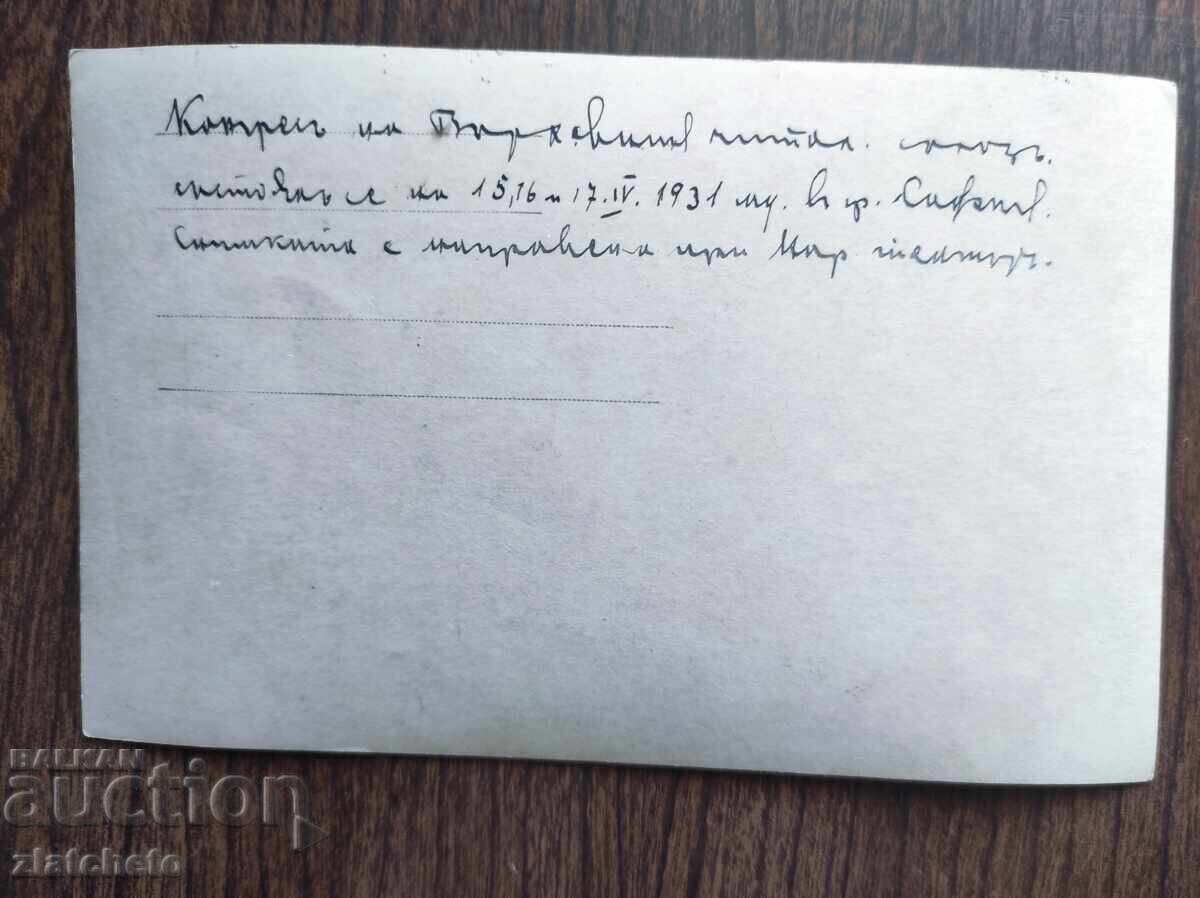 Конгрес на Върховния читал. съюзъ.
състоялъ се на 15, 16 и 17. IV. 1931 год. в гр. София.
Снимката е направена при Нар. театъръ.
BALKAN
auction
zlatcheto